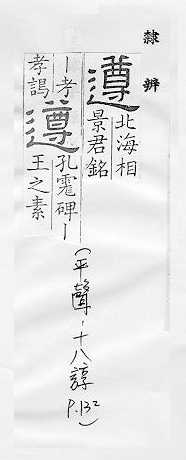 隸辨
遵
北海相
景君銘
｜孝
孝謁
遵
孔碑｜
王之素
(平聲-十八諄 P.132)